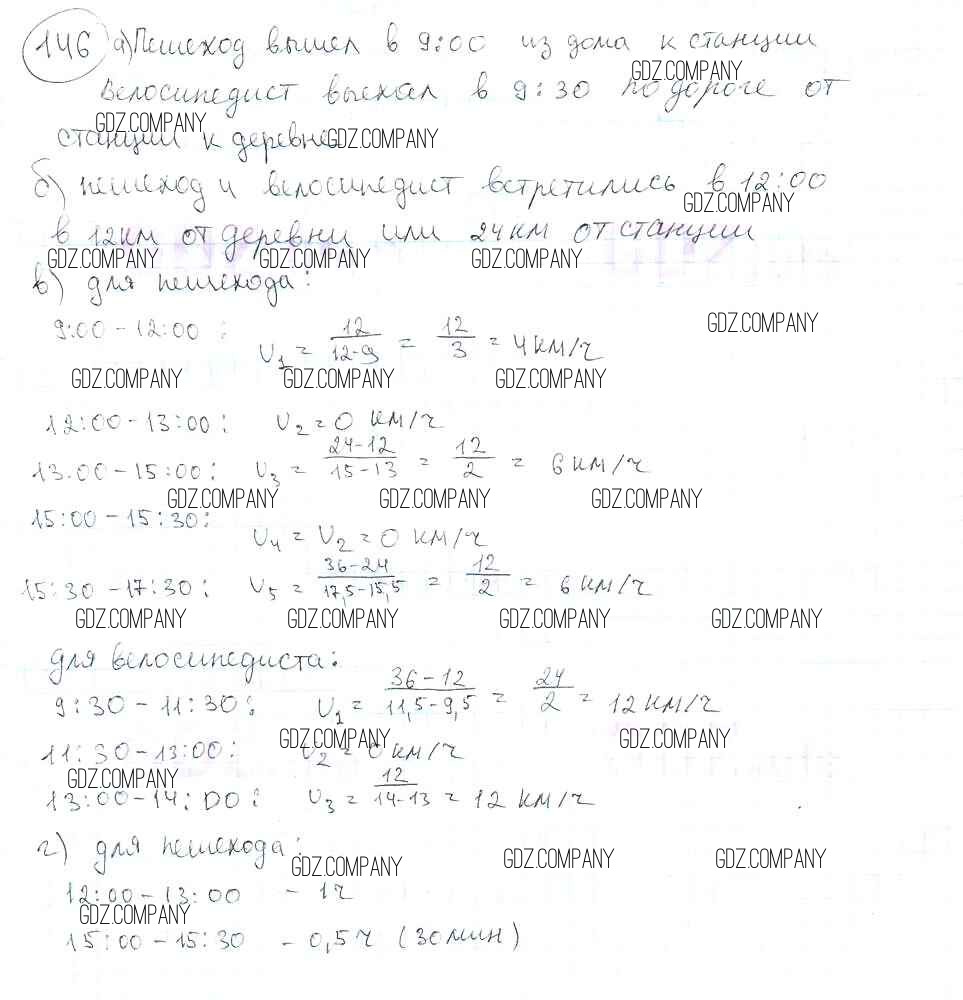 146 а) Пешеход вышел в 9:00 из дома к станции
GDZ.COMPANY
Велосипедист выехал в 9:30 по дороге от
GDZ.COMPANY
станции к деревне GDZ.COMPANY
б) пешеход и велосипедист встретились в 12:00
GDZ.COMPANY
в 12 км от деревни или 24 км от станции
GDZ.COMPANY GDZ.COMPANY GDZ.COMPANY
в) для пешехода:
GDZ.COMPANY
9:00 - 12:00 : υ₁ = 12/12-9 = 12/3 = 4 км/ч
GDZ.COMPANY GDZ.COMPANY GDZ.COMPANY
12:00 - 13:00 : υ₂ = 0 км/ч
13.00 - 15:00 : υ₃ = 24-12/15-13 = 12/2 = 6 км/ч
GDZ.COMPANY GDZ.COMPANY GDZ.COMPANY
15:00 - 15:30 : υ₄ = υ₂ = 0 км/ч
15:30 - 17:30 : υ₅ = 36-24/17,5-15,5 = 12/2 = 6 км/ч
GDZ.COMPANY GDZ.COMPANY GDZ.COMPANY GDZ.COMPANY
для велосипедиста:
9:30 - 11:30 : υ₁ = 36-12/11,5-9,5 = 24/2 = 12 км/ч
GDZ.COMPANY GDZ.COMPANY
11:30 - 13:00 : υ₂ = 0 км/ч
GDZ.COMPANY
13:00 - 14:00 : υ₃ = 12/14-13 = 12 км/ч
г) для пешехода:
GDZ.COMPANY GDZ.COMPANY GDZ.COMPANY
12:00 - 13:00 - 1ч
GDZ.COMPANY
15:00 - 15:30 - 0,5 ч (30 мин)